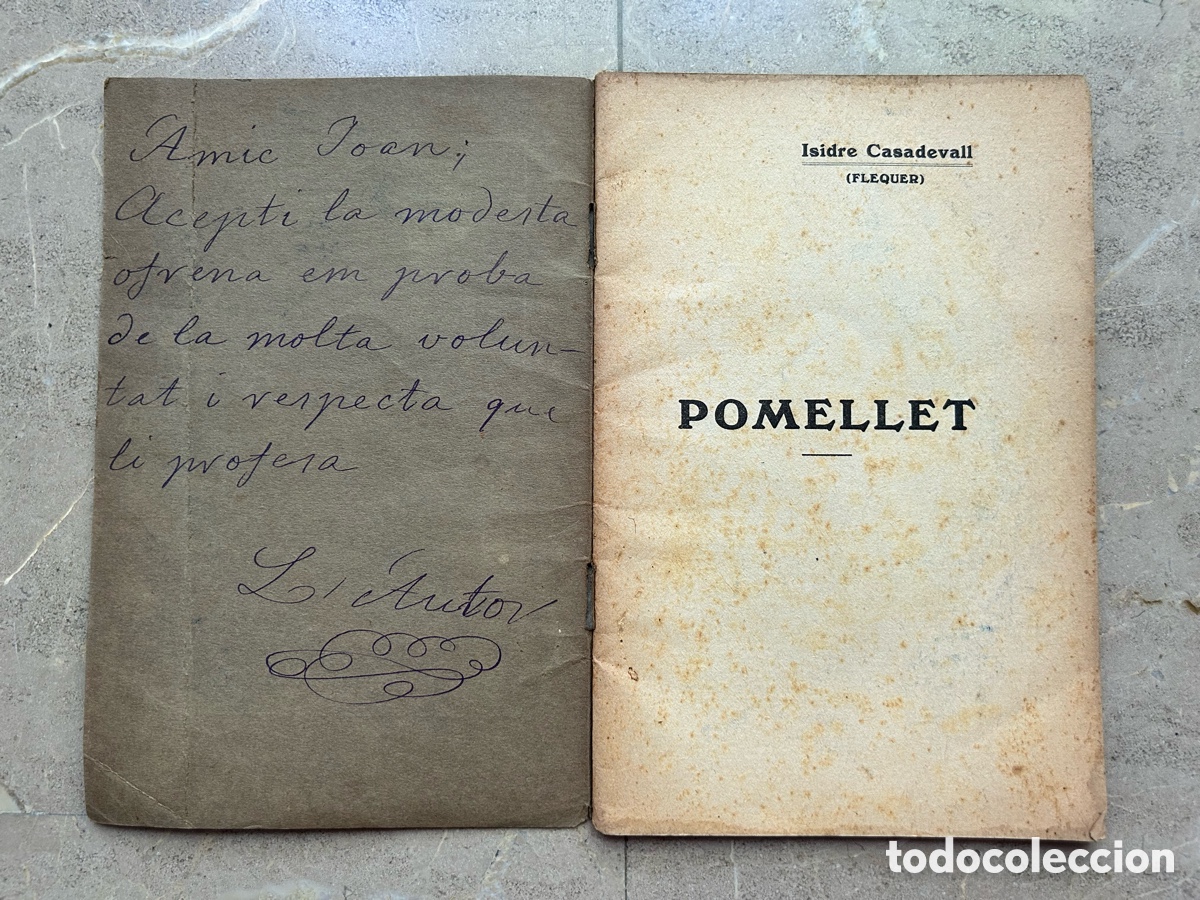 Amic Joan;
Acepti la modesta
ofrena em proba
de la molta volun-
tat i respecta que
li profesa
L'Autor
Isidre Casadevall
(FLEQUER)
POMELLET
todocoleccion